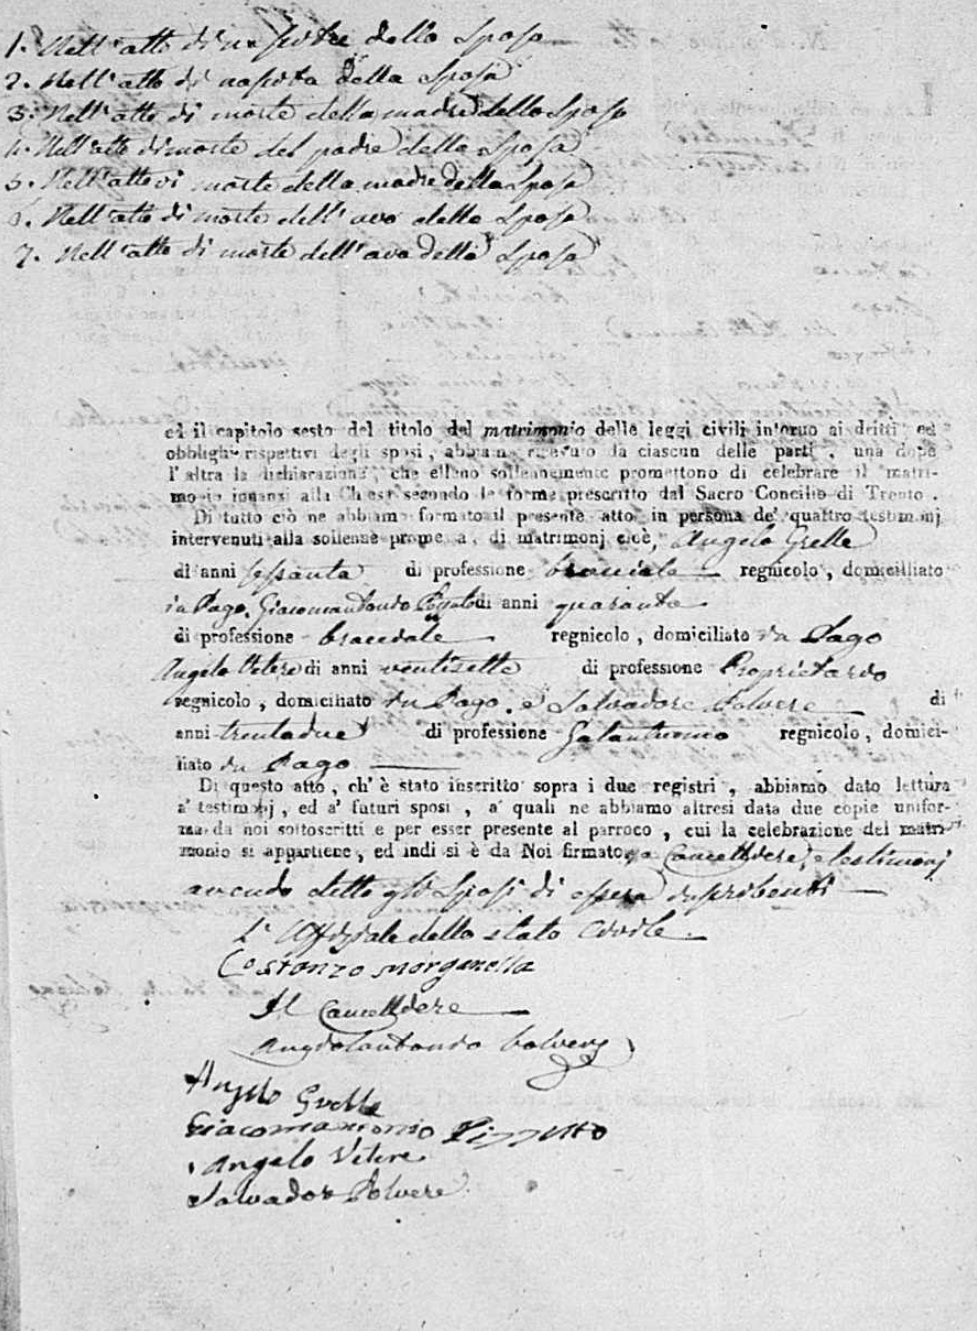 1. Nell'atto di nascita dello Sposo
2. Nell'atto di nascita della Sposa
3. Nell'atto di morte della madre dello Sposo
4. Nell'atto di morte del padre della Sposa
5. Nell'atto di morte della madre della Sposa
6. Nell'atto di morte dell'avo dello Sposo
7. Nell'atto di morte dell'avo della Sposa
ed il capitolo sesto del titolo del matrimonio delle leggi civili intorno ai dritti ed
obblighi rispettivi degli sposi, abbiam ricevuto da ciascun delle parti, una dopo
l'altra la dichiarazione, che elleno sollennemente promettono di celebrare il matri-
monio innanzi alla Chiesa secondo le forme prescritto dal Sacro Concilio di Trento.
Di tutto ciò ne abbiamo formato il presente atto in persona de' quattro testimonj
intervenuti alla sollenne promessa, di matrimonj cioè, Angelo Grelle
di anni sessanta di professione bracciale regnicolo, domicilliato
in Pago, Giacomantonio Pizzuto di anni quaranta
di professione bracciale regnicolo, domiciliato in Pago
Angelo Vetere di anni ventisette di professione Proprietario
regnicolo, domiciliato in Pago, e Salvadore Polvere di
anni trentadue di professione Galantuomo regnicolo, domici-
liato in Pago
Di questo atto, ch' è stato inscritto sopra i due registri, abbiamo dato lettura
a' testimonj, ed a' futuri sposi, a' quali ne abbiamo altresi data due copie unifor-
me da noi sottoscritti e per esser presente al parroco, cui la celebrazione del matri-
monio si appartiene, ed indi si è da Noi firmato, Cancelliere, e testimonj
avendo detto gli Sposi di essere
L'Uffiziale dello stato Civile
Costanzo Morganella
Il Cancelliere
Angiolantonio Polvere
Angelo Grelle
Giacomantonio Pizzuto
Angelo Vetere
Salvadore Polvere